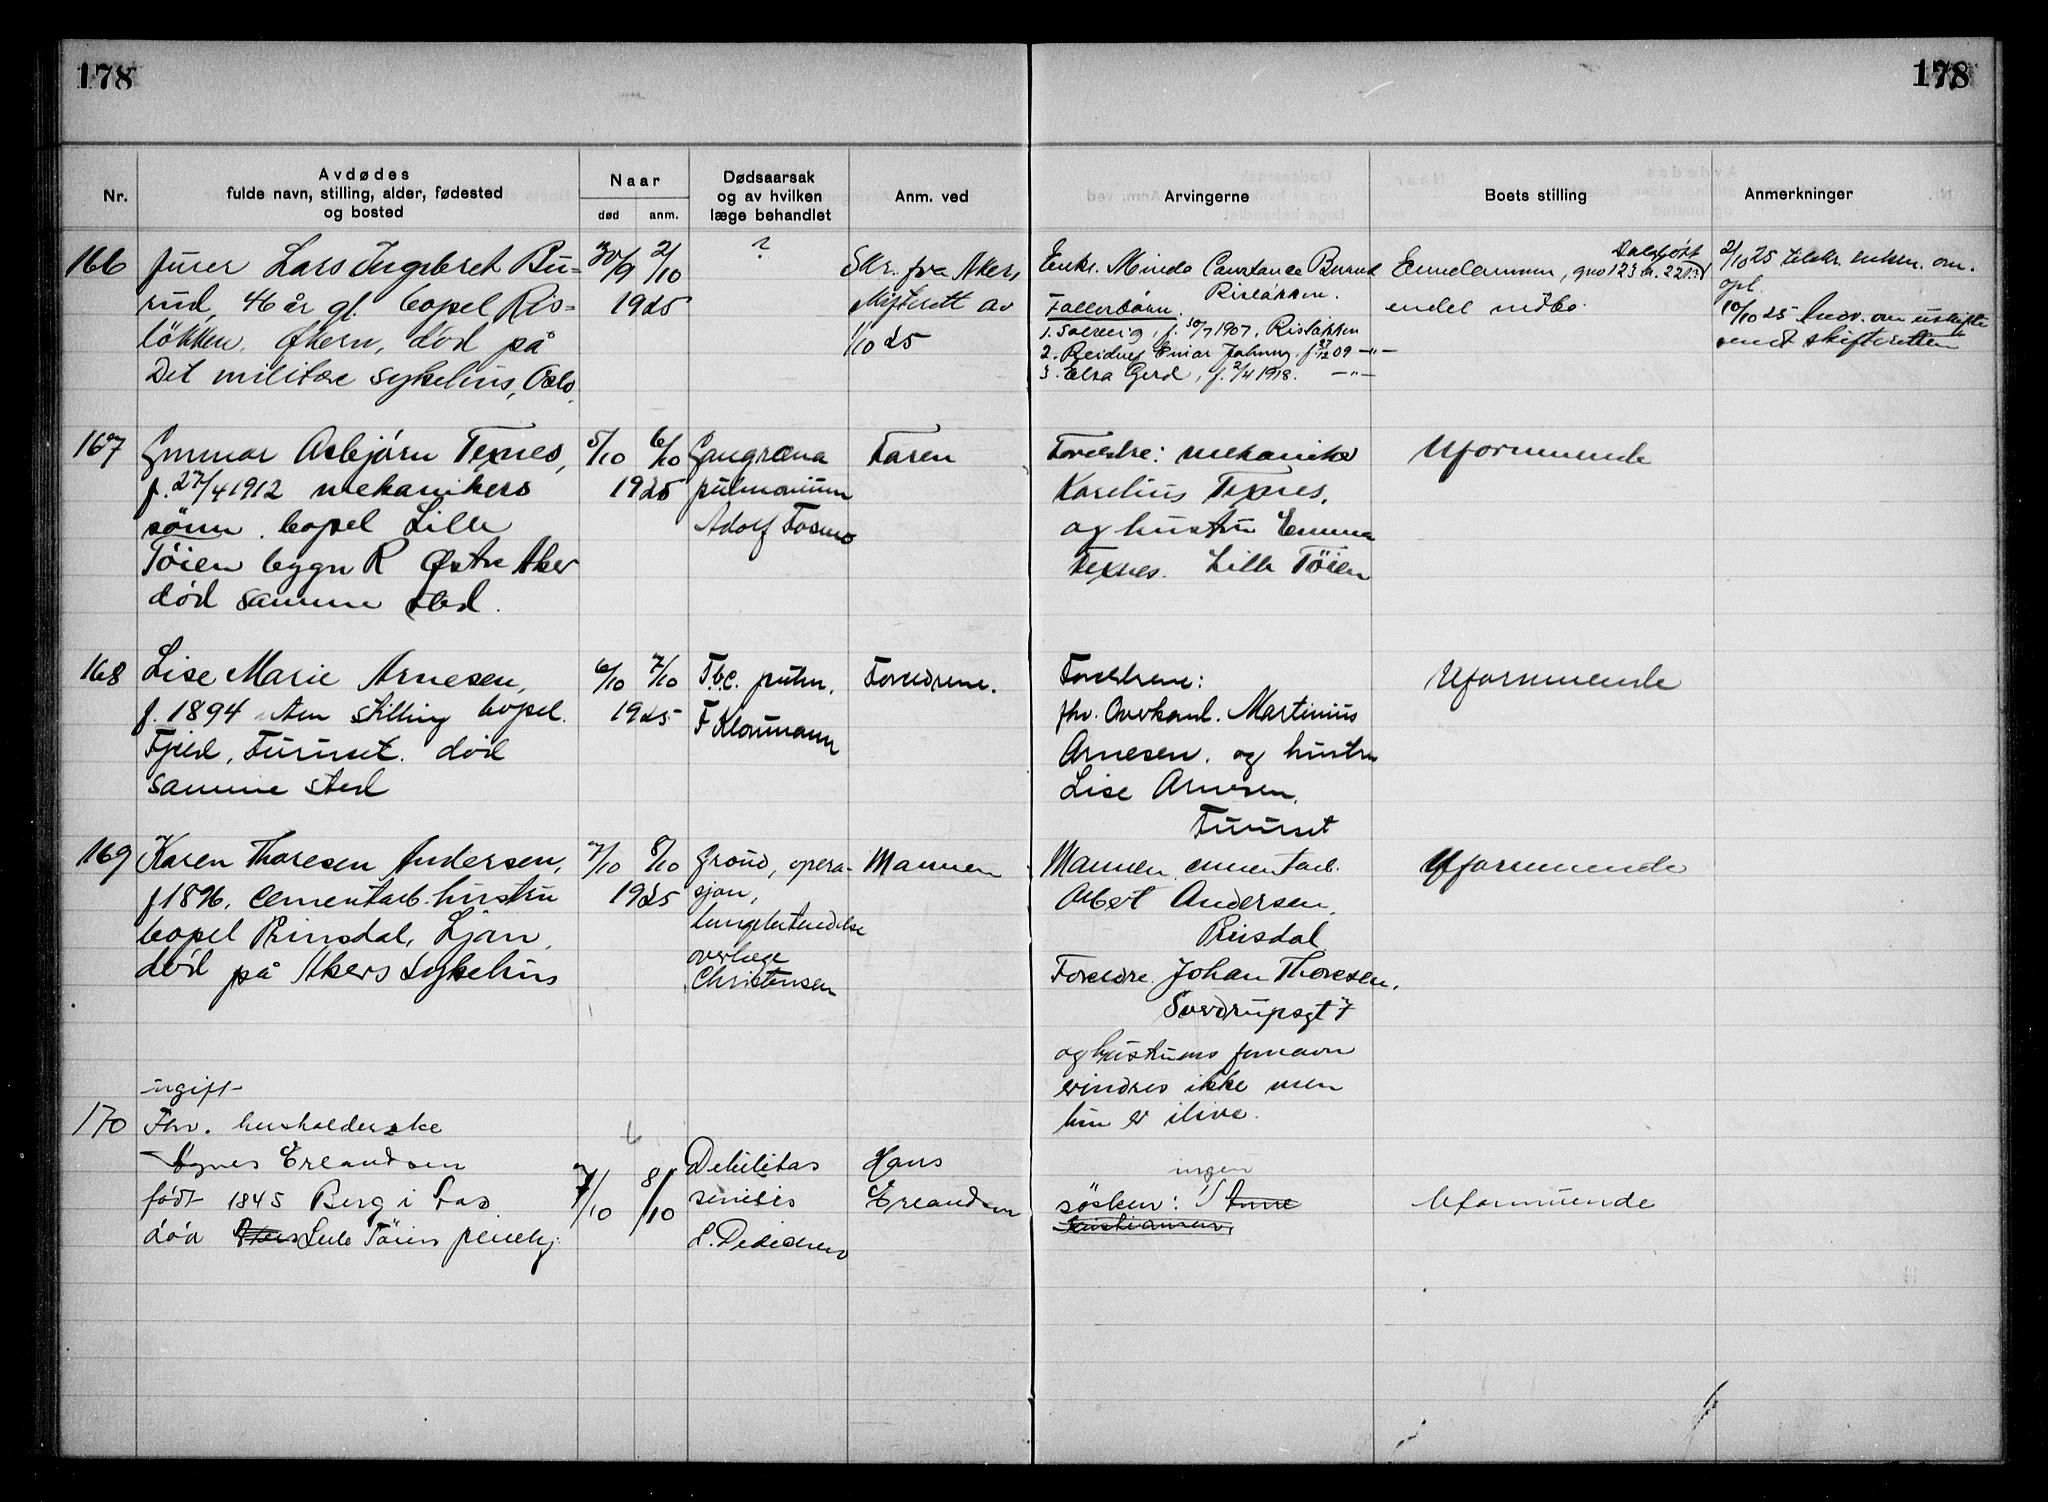 178
178
Nr.
Avdødes
fulde navn, stilling, alder, fødested
og bosted
Naar
død
anm.
Dødsaarsak
og av hvilken
læge behandlet
Anm. ved
Arvingerne
Boets stilling
Anmerkninger
166
furer Lars Ingebret Bu-
rud, 46 år gl. bopel Ris-
løkken, Økern, død på
Det militære sykehus, Oslo.
30/9 2/10
1925
?
Skr. fra Akers
skifterett av
1/10 25
Enke. Minda Constance Burud
Risløkken.
Fællesbørn.
1. Solveig, f. 30/7 1907, Risløkken
2. Reidar Einar Johnny. f. 27/12 09 -"-
3. Elsa Gerd, f. 2/4 1918. -"-
Eiendommen, gno 123 br. 22
endel indbo.
2/10 25 tilskr. enken. om
opl.
10/10 25 om uskifte
sendt skifteretten
167
Gunnar Asbjørn Texnes,
f. 27/4 1912 mekanikers
sønn. bopel Lille
Tøien bygn R Østre Aker
død samme sted.
5/10 6/10
1925
Gangræna
pulmonum
Adolf
Faren
Foreldre: mekaniker
Karelius Texnes,
og hustru Emma
Texnes. Lille Tøien
Uformuende
168
Lise Marie Arnesen,
f. 1894 uten stilling bopel.
Fjeld, Furuset. død
samme sted
6/10 7/10
1925
Tbc. pulm.
F Kloumann
Foreldrene.
Foreldrene:
fhv. Martinius
Arnesen. og hustru
Lise Arnesen.
Furuset
Uformuende
169
Karen Thoresen Andersen,
f 1896, cementarb. hustru
bopel Prinsdal, Ljan,
død på Akers sykehus
7/10 8/10
1925
Gravid, opera-
sjon,
lungebetendelse
overlæge
Christensen
Mannen
Mannen, cementarb.
Albert Andersen,
Prinsdal
Foreldre. Johan Thoresen.
Sverdrupsgt 7
og hustrus fornavn
erindres ikke men
hun er ilive.
Uformuende
170
ugift
Fhv. husholderske
Agnes Erlandsen
født 1845 Berg i
død Lille Tøiens pleiehj.
7/10 8/10
Debilitas
senilis
Hans
Erlandsen
søsken: ingen
Anne
Kristiansen,
Uformuende